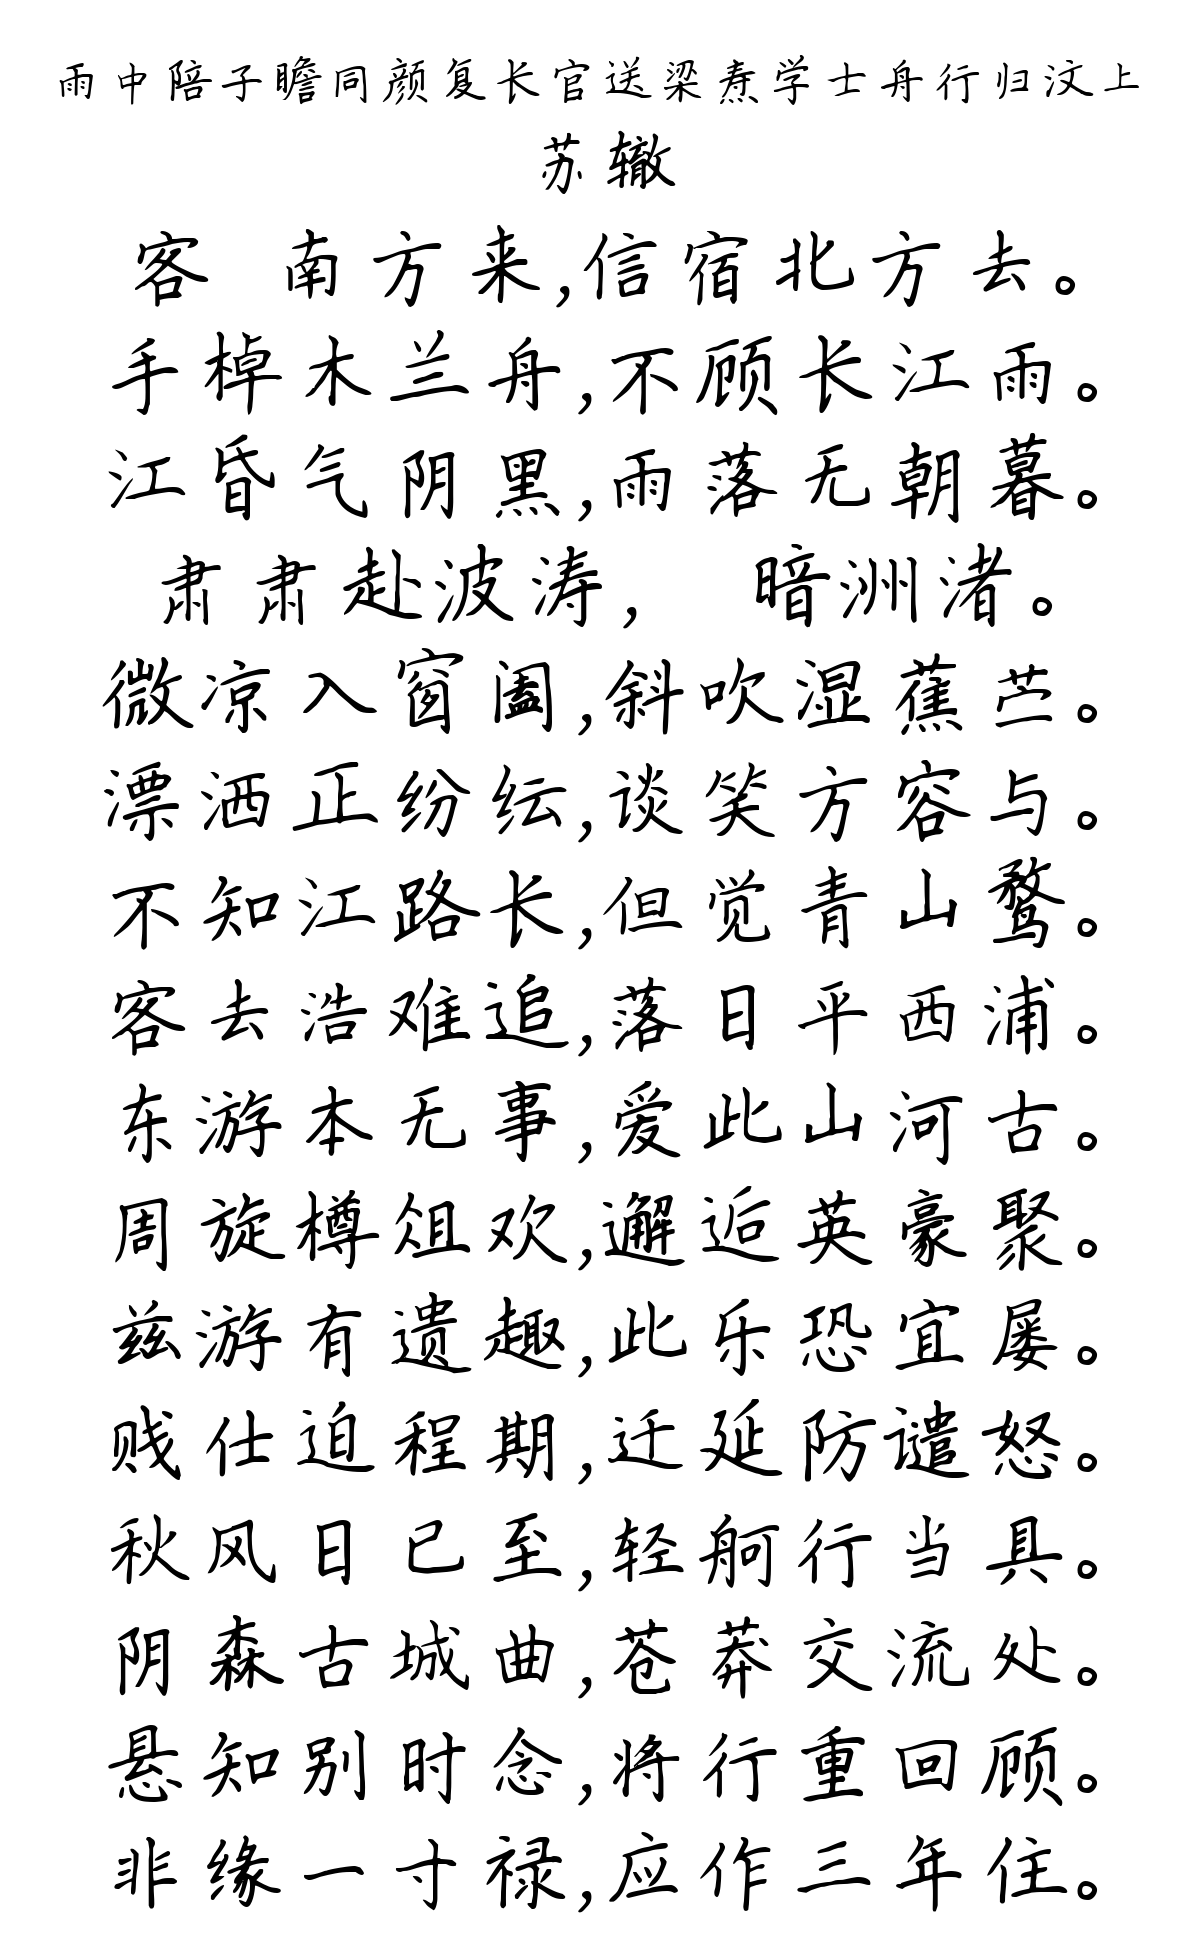 雨中陪子瞻同颜复长官送梁焘学士舟行归汶上
苏辙
客 南方来,信宿北方去。
手棹木兰舟,不顾长江雨。
江昏气阴黑,雨落无朝暮。
肃肃赴波涛, 暗洲渚。
微凉入窗阖,斜吹湿蕉苎。
漂洒正纷纭,谈笑方容与。
不知江路长,但觉青山鹜。
客去浩难追,落日平西浦。
东游本无事,爱此山河古。
周旋樽俎欢,邂逅英豪聚。
兹游有遗趣,此乐恐宜屡。
贱仕迫程期,迁延防谴怒。
秋风日已至,轻舸行当具。
阴森古城曲,苍莽交流处。
悬知别时念,将行重回顾。
非缘一寸禄,应作三年住。